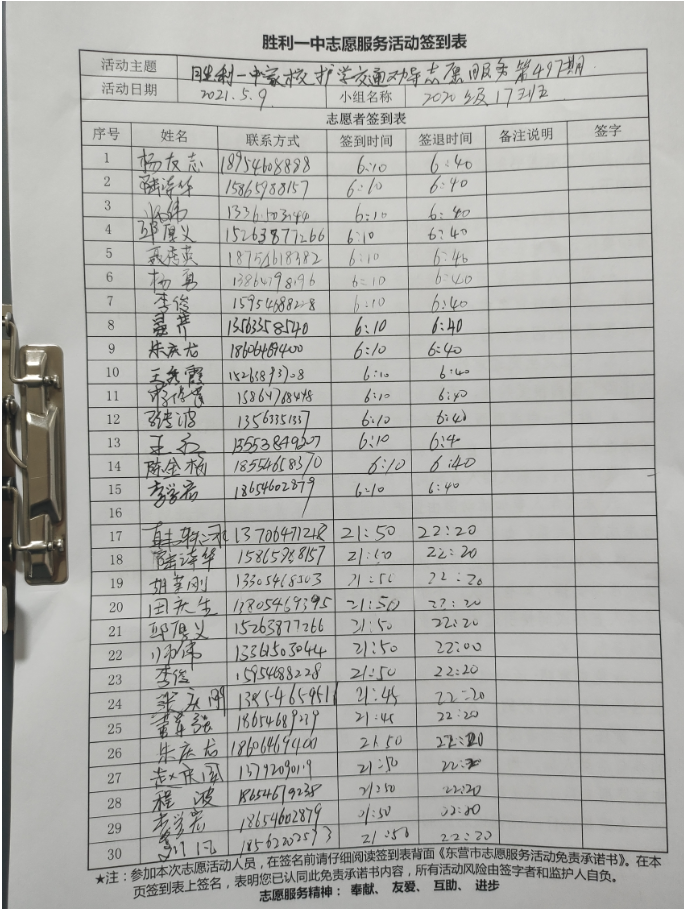 胜利一中志愿服务活动签到表
活动主题 胜利一中家校护学交通劝导志愿服务第497期
活动日期 2021.5.9. 小组名称 2020级17班
志愿者签到表
序号 姓名 联系方式 签到时间 签退时间 备注说明 签字
1 杨友志 18954608888 6:10 6:40
2 陆涛华 15865988157 6:10 6:40
3 6:10 6:40
4 邱厚义 15263877266 6:10 6:40
5 18754618382 6:10 6:40
6 杨勇 6:10 6:40
7 李俊 15954688228 6:10 6:40
8 13563358540 6:10 6:40
9 朱庆龙 18606469400 6:10 6:40
10 王秀霞 6:10 6:40
11 6:10 6:40
12 6:10 6:40
13 6:10 6:4
14 陈金梅 18554658370 6:10 6:40
15 李学宏 18654602879 6:10 6:40
16
17 13706471218 21:50 22:20
18 陆涛华 21:50 22:20
19 胡荣刚 13305468303 21:50 22:20
20 田庆生 13805469395 21:50 22:20
21 邱厚义 15263877266 21:50 22:20
22 师伟 13361503044 21:50 22:00
23 李俊 15954688228 21:50 22:20
24 张庆刚 21:45 22:20
25 18654689239 21:45 22:20
26 朱庆龙 18606469400 21:50 22:20
27 21:50 22:20
28 程波 18654679238 21:50 22:20
29 李学宏 18654602879 21:50 22:20
30 18562202593 21:50 22:20
★注：参加本次志愿活动人员，在签名前请仔细阅读签到表背面《东营市志愿服务活动免责承诺书》。在本
页签到表上签名，表明您已认同此免责承诺书内容，所有活动风险由签字者和监护人自负。
志愿服务精神：奉献、友爱、互助、进步